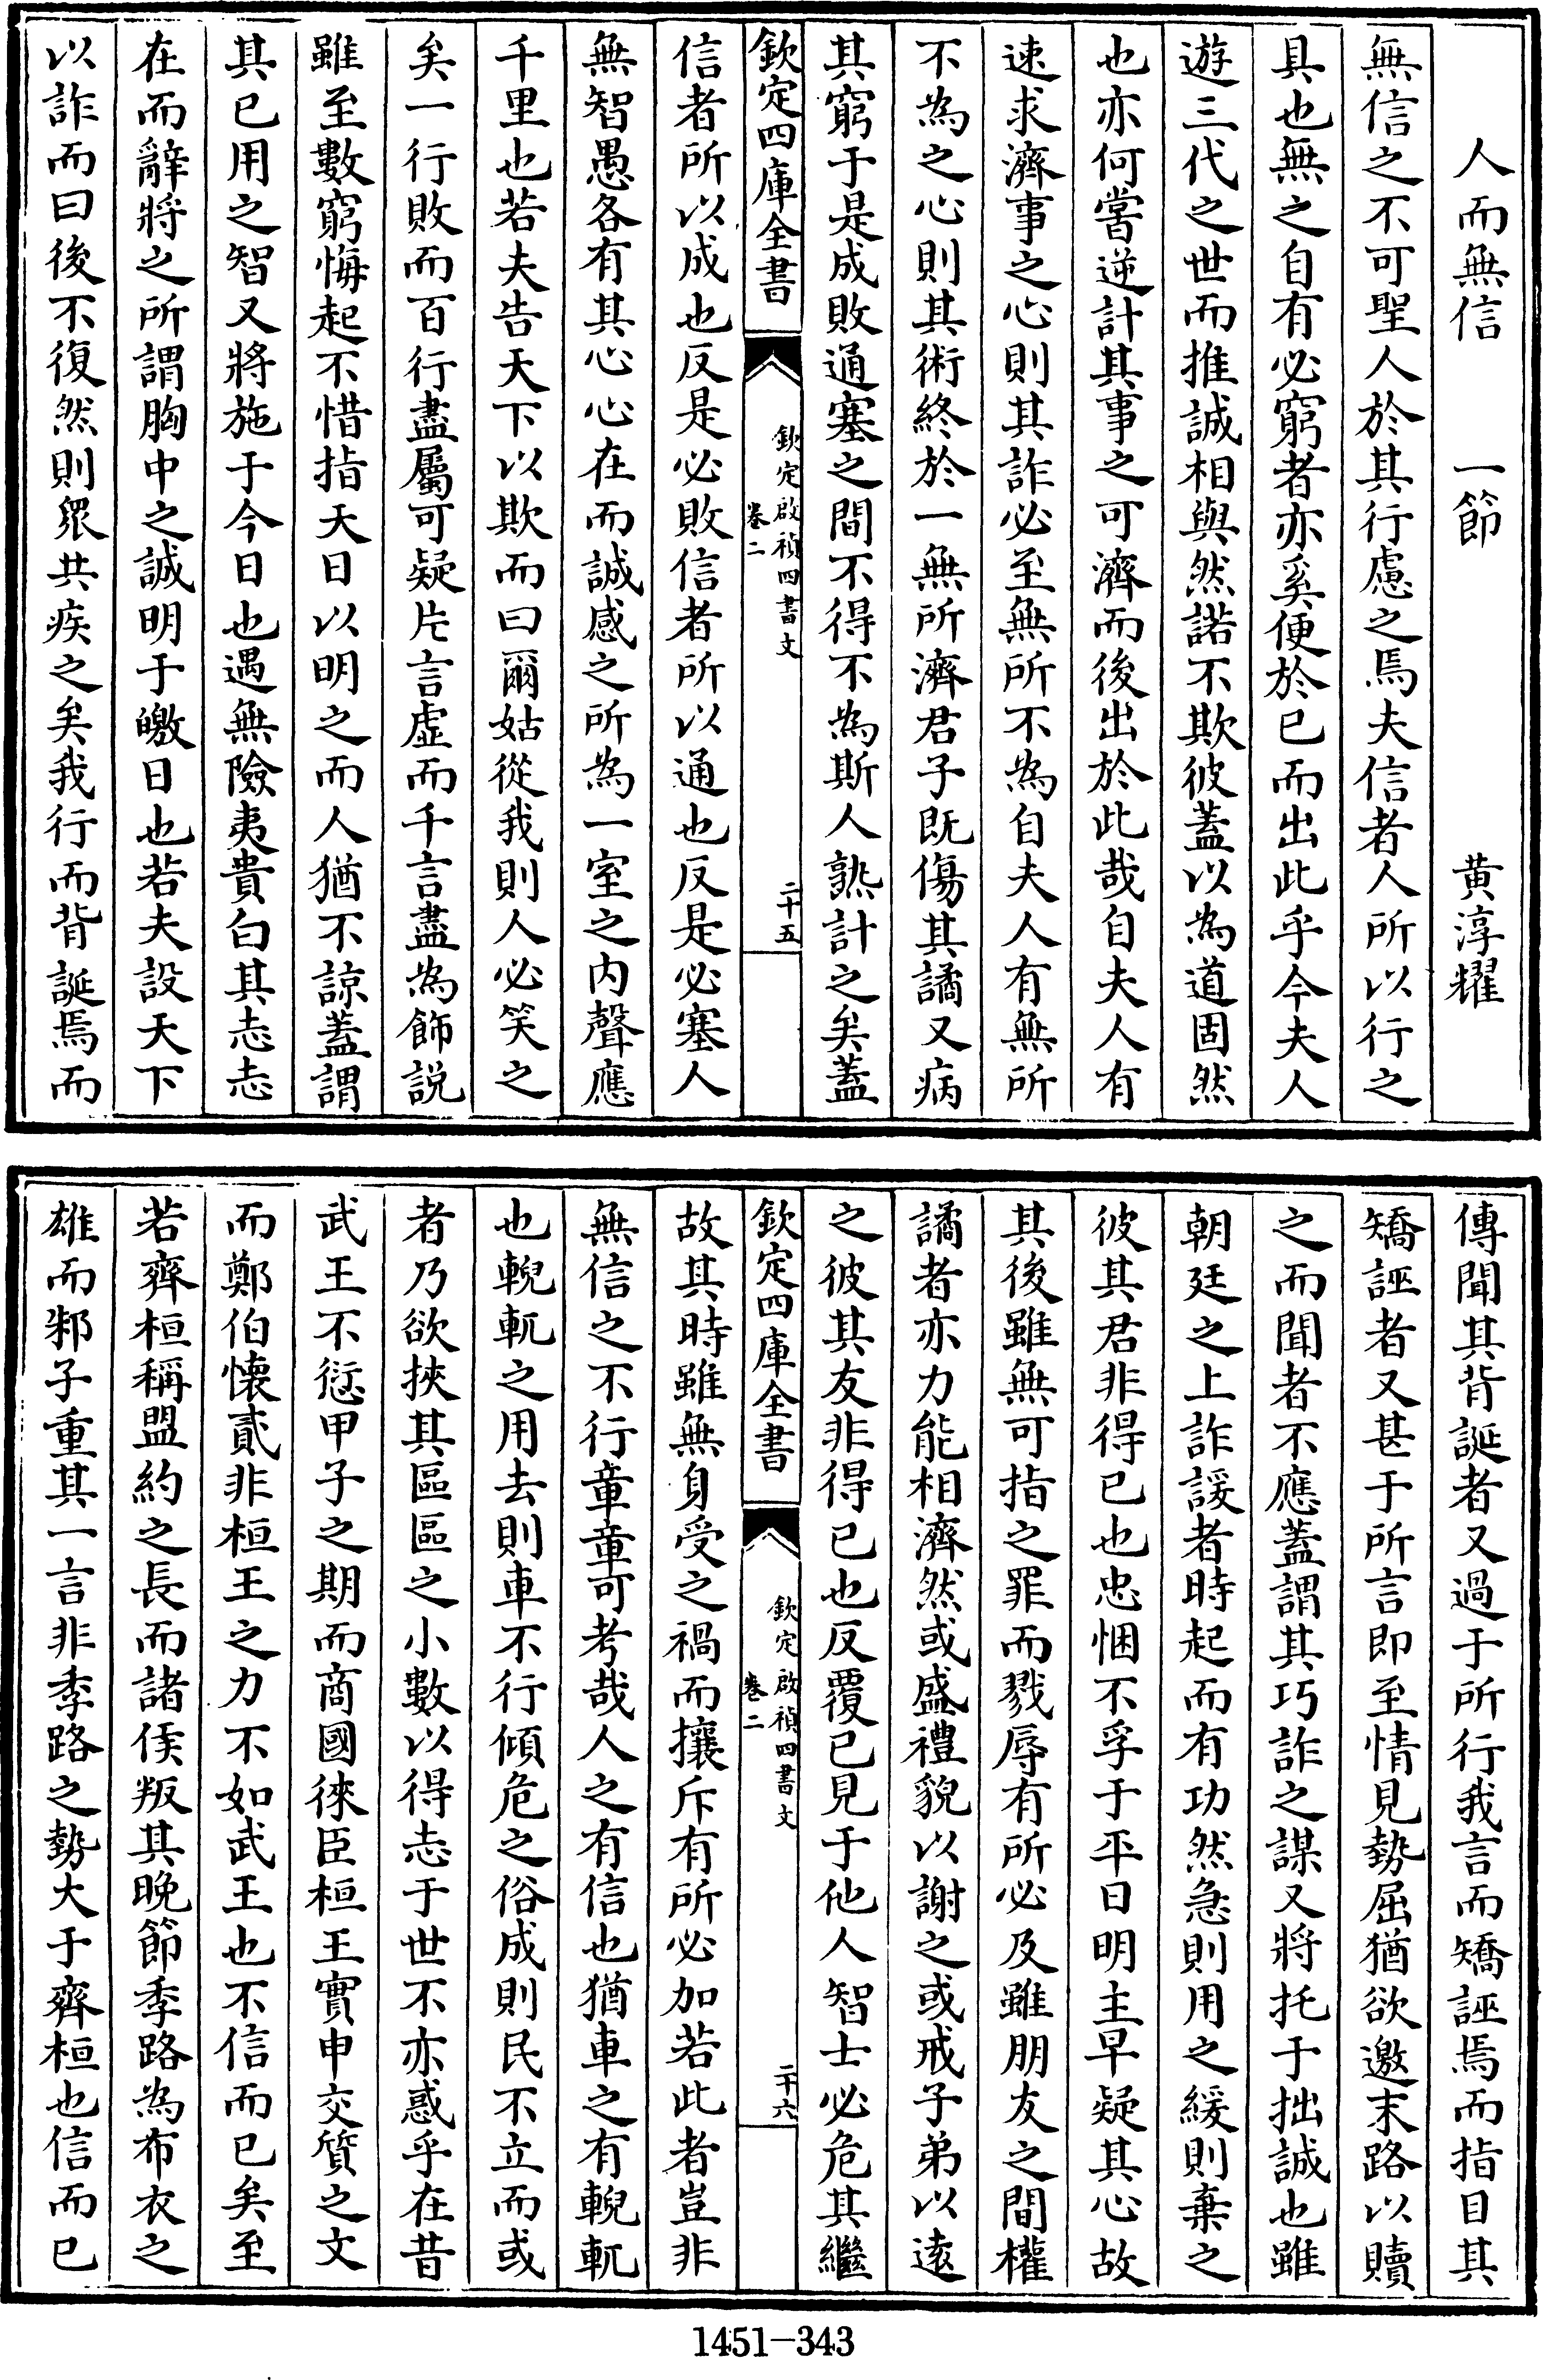 人而無信　一節　黄淳耀
無信之不可聖人於其行慮之焉夫信者人所以行之
具也無之自有必窮者亦奚便於已而出此乎今夫人
遊三代之世而推誠相與然諾不欺彼蓋以為道固然
也亦何嘗逆計其事之可濟而後出於此哉自夫人有
速求濟事之心則其詐必至無所不為自夫人有無所
不為之心則其術終於一無所濟君子既傷其譎又病
其窮于是成敗通塞之間不得不為斯人熟計之矣蓋
欽定四庫全書
欽定啟禎四書文
卷二
二十五
信者所以成也反是必敗信者所以通也反是必塞人
無智愚各有其心心在而誠感之所為一室之内聲應
千里也若夫告天下以欺而曰爾姑從我則人必笑之
矣一行敗而百行盡屬可疑片言虛而千言盡為飾説
雖至數窮悔起不惜指天日以明之而人猶不諒蓋謂
其已用之智又將施于今日也遇無險夷貴白其志志
在而辭將之所謂胸中之誠明于皦日也若夫設天下
以詐而曰後不復然則衆共疾之矣我行而背誕焉而
傳聞其背誕者又過于所行我言而矯誣焉而指目其
矯誣者又甚于所言即至情見勢屈猶欲邀末路以贖
之而聞者不應蓋謂其巧詐之謀又將托于拙誠也雖
朝廷之上詐諼者時起而有功然急則用之緩則棄之
彼其君非得已也忠悃不孚于平日明主早疑其心故
其後雖無可指之罪而戮辱有所必及雖朋友之間權
譎者亦力能相濟然或盛禮貌以謝之或戒子弟以遠
之彼其友非得已也反覆已見于他人智士必危其繼
欽定四庫全書
欽定啟禎四書文
卷二
二十六
故其時雖無身受之禍而攘斥有所必加若此者豈非
無信之不行章章可考哉人之有信也猶車之有輗軏
也輗軏之用去則車不行傾危之俗成則民不立而或
者乃欲挾其區區之小數以得志于世不亦惑乎在昔
武王不愆甲子之期而商國徠臣桓王實申交質之文
而鄭伯懷貳非桓王之力不如武王也不信而已矣至
若齊桓稱盟約之長而諸侯叛其晚節季路為布衣之
雄而邾子重其一言非季路之勢大于齊桓也信而已
1451-343